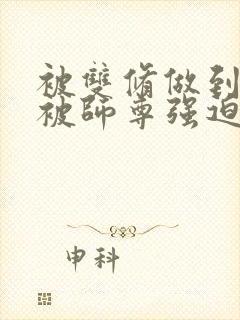 被雙脩做到
被師尊强迫
申科